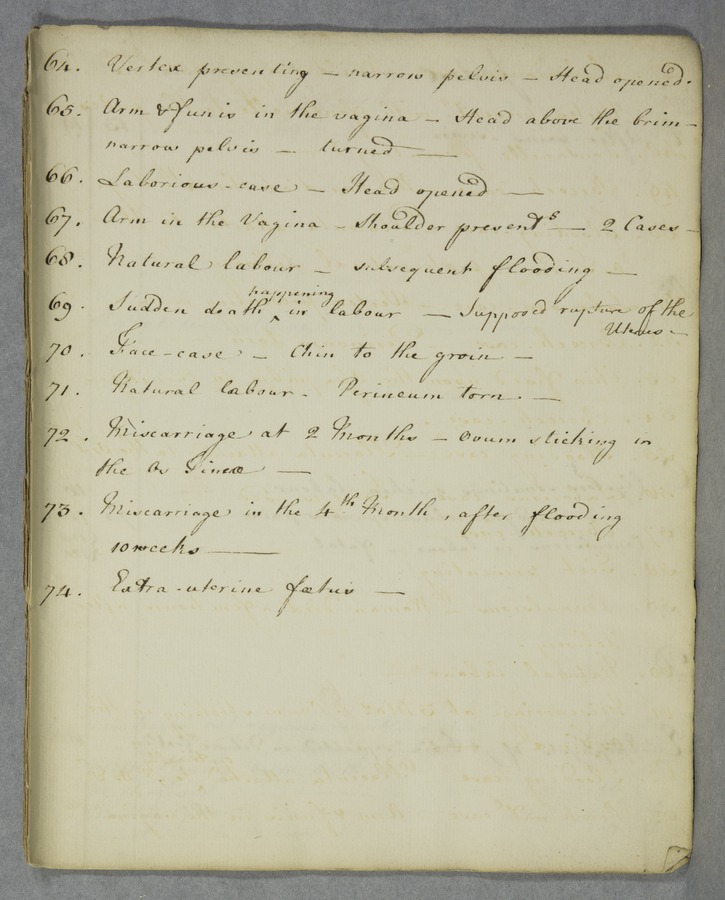 64. Vertex presenting - narrow pelvis - Head opened.
65. Arm & funis in the vagina - Head above the brim -
narrow pelvis - turned -
66. Laborious-case - Head opened -
67. Arm in the Vagina - Shoulder present^s - 2 Cases -
68. Natural labour - subsequent flooding -
happening
69. Sudden death ^ in labour - Supposed rupture of the
Uterus -
70. Face-case - Chin to the groin -
71. Natural labour - Perineum torn. -
72. Miscarriage at 2 Months - Ovum sticking in
the Os Tincæ -
73. Miscarriage in the 4th Month, after flooding
10 weeks -
74. Extra-uterine fœtus -